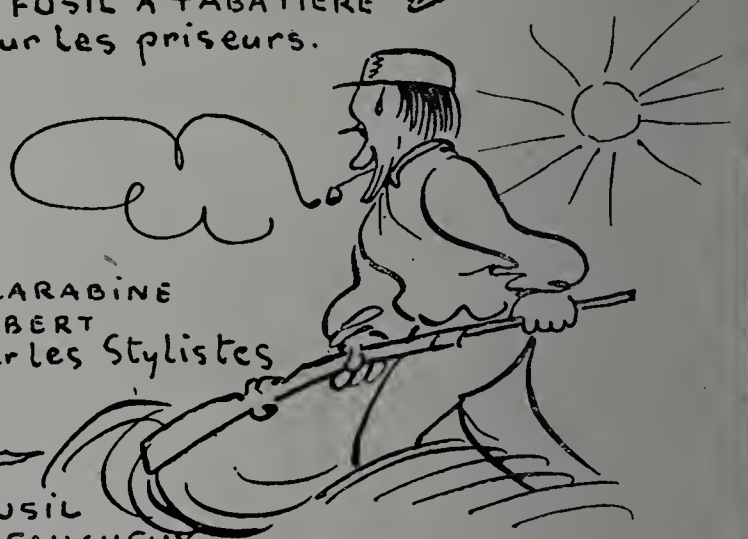 FUSIL A TABATIERE
ur les priseurs.
ARABINE
BERT
r les Stylistes
USIL